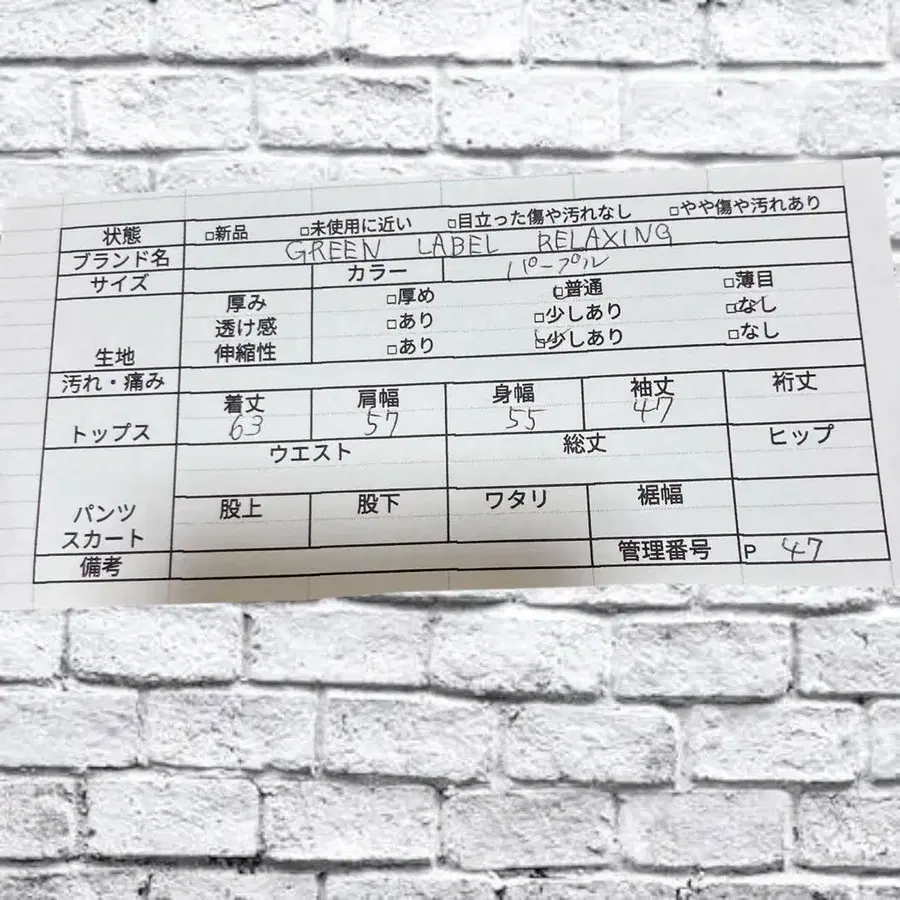 状態 □新品 □未使用に近い □目立った傷や汚れなし □やや傷や汚れあり
ブランド名 GREEN LABEL RELAXING
サイズ カラー パープル
生地 厚み □厚め □普通 □薄目
透け感 □あり □少しあり □なし
伸縮性 □あり □少しあり □なし
汚れ・痛み
トップス 着丈 肩幅 身幅 袖丈 裄丈
63 57 55 47
パンツ スカート ウエスト 総丈 ヒップ
股上 股下 ワタリ 裾幅
備考 管理番号 P 47